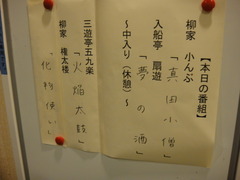 【本日の番組】
柳家 小んぶ
「真田小僧」
入船亭 扇遊
「夢の酒」
〜中入り（休憩）〜
三遊亭五九楽
「火焔太鼓」
柳家 権太楼
「化物使い」